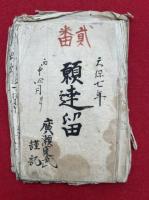 貳番
天保七年
願達留
丙申四月
廣瀬
謹記